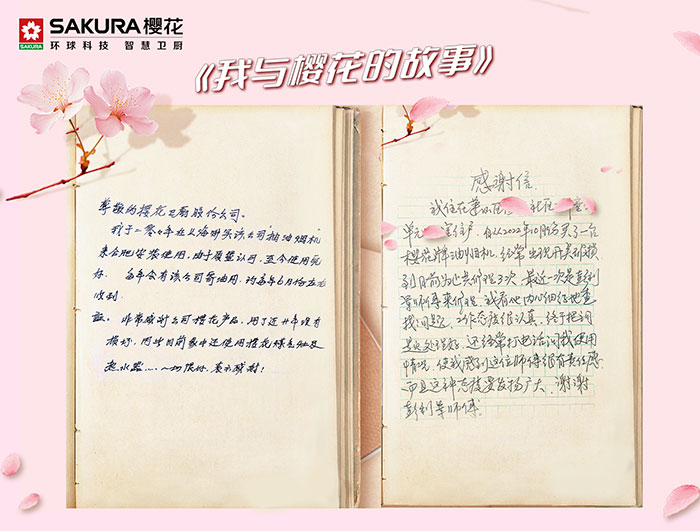 SAKURA 樱花
SAKURA
环球科技 智慧卫厨
《我与樱花的故事》
尊敬的樱花卫厨股份公司。
我于一九九年在上海街头该公司"抽油烟机"
来合肥安装使用，由于质量认可，至今使用完
好。每年会有该公司寄油网，约每年6月份左右
收到
非常感谢公司樱花产品，用了近廿年没有
损坏，同时目前家中还使用樱花煤气灶及
热水器……一切很好，表示感谢！
感谢信
我住在
单元 室住户，自从2022年10月份买了一台
樱花牌油烟机，经常出现开关故障
到目前为止共修理3次，最近一次是彭利
军师傅来修理，我看他内心细致地查
找问题，工作态度很认真，终于把问
题处理好，还经常打电话问我使用
情况，使我感到这位师傅很有责任感
而且这种态度要发扬广大，谢谢
彭利军师傅。